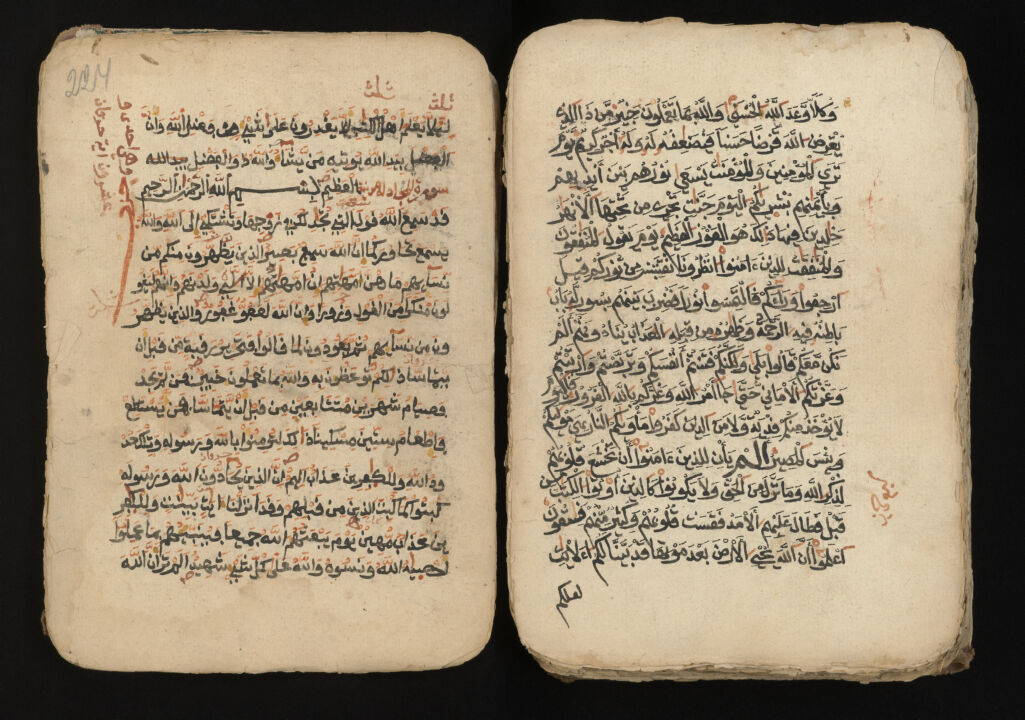 وكلا وعد الله الحسنى والله بما تعملون خبير من ذا الذي
يقرض الله قرضا حسنا فيضعفه له وله أجر كريم يوم
ترى المؤمنين والمؤمنت يسعى نورهم بين أيديهم
وبأيمنهم بشريكم اليوم جنت تجري من تحتها الأنهر
خلدين فيها ذلك هو الفوز العظيم يوم يقول المنفقون
والمنفقت للذين ءامنوا انظرونا نقتبس من نوركم قيل
ارجعوا وراءكم فالتمسوا نورا فضرب بينهم بسور له باب
باطنه فيه الرحمة وظهره من قبله العذاب ينادونهم ألم
نكن معكم قالوا بلى ولكنكم فتنتم أنفسكم وتربصتم وارتبتم
وغرتكم الأماني حتى جاء أمر الله وغركم بالله الغرور فاليوم
لا يؤخذ منكم فدية ولا من الذين كفروا مأويكم النار هي موليكم
وبيس المصير ألم يأن للذين ءامنوا أن تخشع قلوبهم
لذكر الله وما نزل من الحق ولا يكونوا كالذين أوتوا الكتب
قبل فطال عليهم الأمد فقست قلوبهم وكثير منهم فسقون
اعلموا أن الله يحي الأرض بعد موتها قد بينا لكم الأيت
لعلكم
224
ثلث ثلث
ليلا يعلم أهل الكتب ألا يقدرون على شيء من فضل الله وأن
الفضل بيد الله يوتيه من يشاء والله ذو الفضل
العظيم بسم الله الرحمن الرحيم
قد سمع الله قول التي تجدلك في زوجها وتشتكي إلى الله والله
يسمع تحاوركما إن الله سميع بصير الذين يظهرون منكم من
نسايهم ما هن أمهتهم إن أمهتهم إلا الي ولدنهم وإنهم ليقو
لون منكرا من القول وزورا وإن الله لعفو غفور والذين يظهر
ون من نسايهم ثم يعودون لما قالوا فتحرير رقبة من قبل أن
يتماسا ذلكم توعظون به والله بما تعملون خبير فمن لم يجد
فصيام شهرين متتابعين من قبل أن يتماسا فمن لم يستطع
فإطعام ستين مسكينا ذلك لتومنوا بالله ورسوله وتلك حد
ود الله وللكفرين عذاب اليم إن الذين يحادون الله ورسوله
كبتوا كما كبت الذين من قبلهم وقد أنزلنا ءايت بينت وللكفر
ين عذاب مهين يوم يبعثهم الله جميعا فينبيهم بما عملوا
أحصيه الله ونسوه والله على كل شيء شهيد ألم تر أن الله